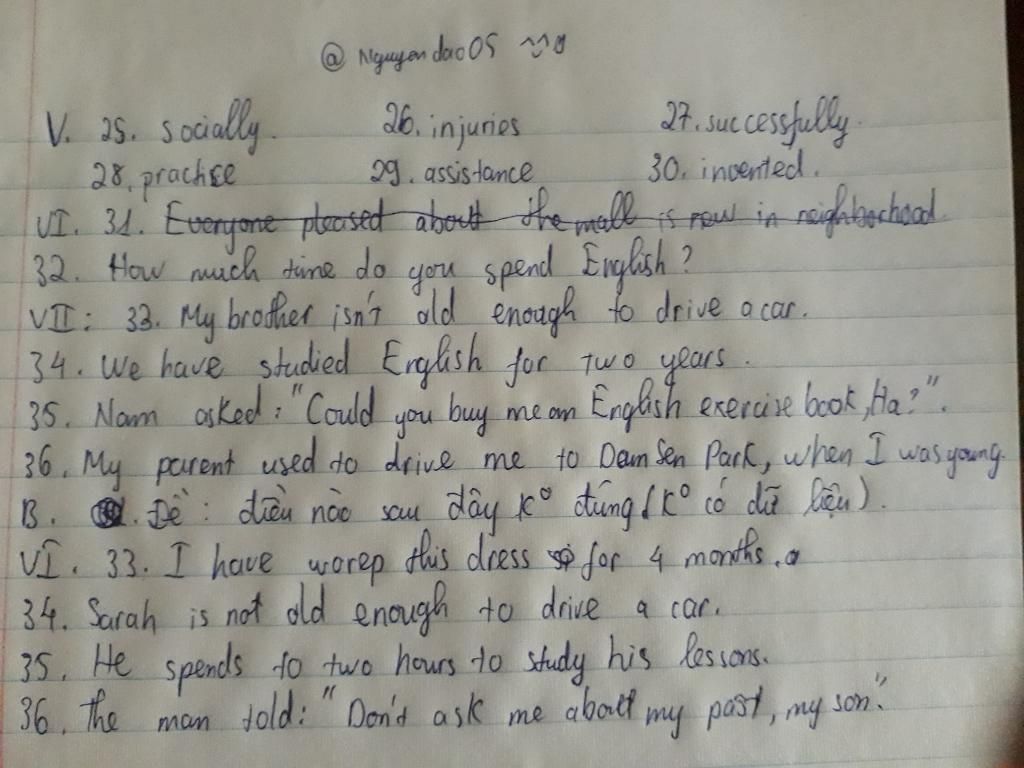 @ Nguyendao05
V. 25. socially. 26. injuries 27. successfully.
28. practice 29. assistance 30. invented.
VI. 31. Everyone pleased about the mall is new in neighborhood
32. How much time do you spend English?
VII: 33. My brother isn't old enough to drive a car.
34. We have studied English for two years.
35. Nam asked: "Could you buy me an English exercise book, Ha?".
36. My parent used to drive me to Dam Sen Park, when I was young.
B. Đề: điều nào sau đây k° đúng (k° có dữ liệu).
VI. 33. I have worep this dress for 4 months.
34. Sarah is not old enough to drive a car.
35. He spends to two hours to study his lessons.
36. The man told: "Don't ask me about my past, my son."